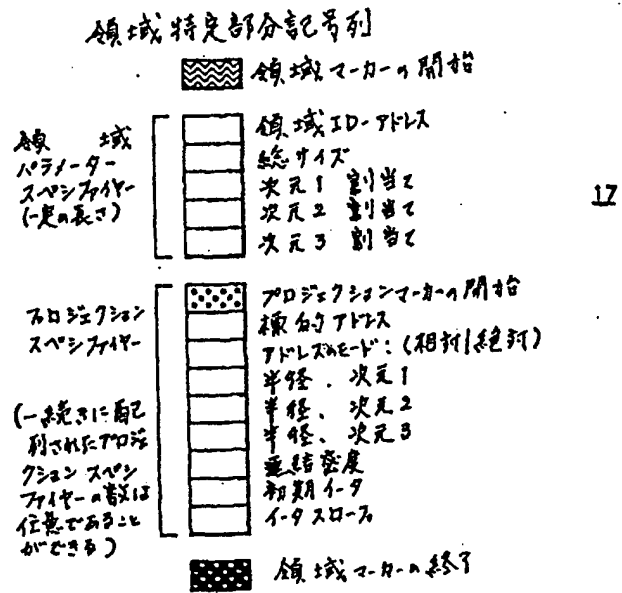 領域特定部分記号列
領域マーカーの開始
領域
パラメーター
スペシファイヤー
(一定の長さ)
領域ID-アドレス
総サイズ
次元1 割当て
次元2 割当て
次元3 割当て
17
プロジェクション
スペシファイヤー
(一続きに配
列されたプロジェ
クション スペシ
ファイヤーの数は
任意であること
ができる)
プロジェクションマーカーの開始
標的アドレス
アドレスのモード:(相対|絶対)
半径、次元1
半径、次元2
半径、次元3
連結密度
初期イータ
イータスロープ
領域マーカーの終了